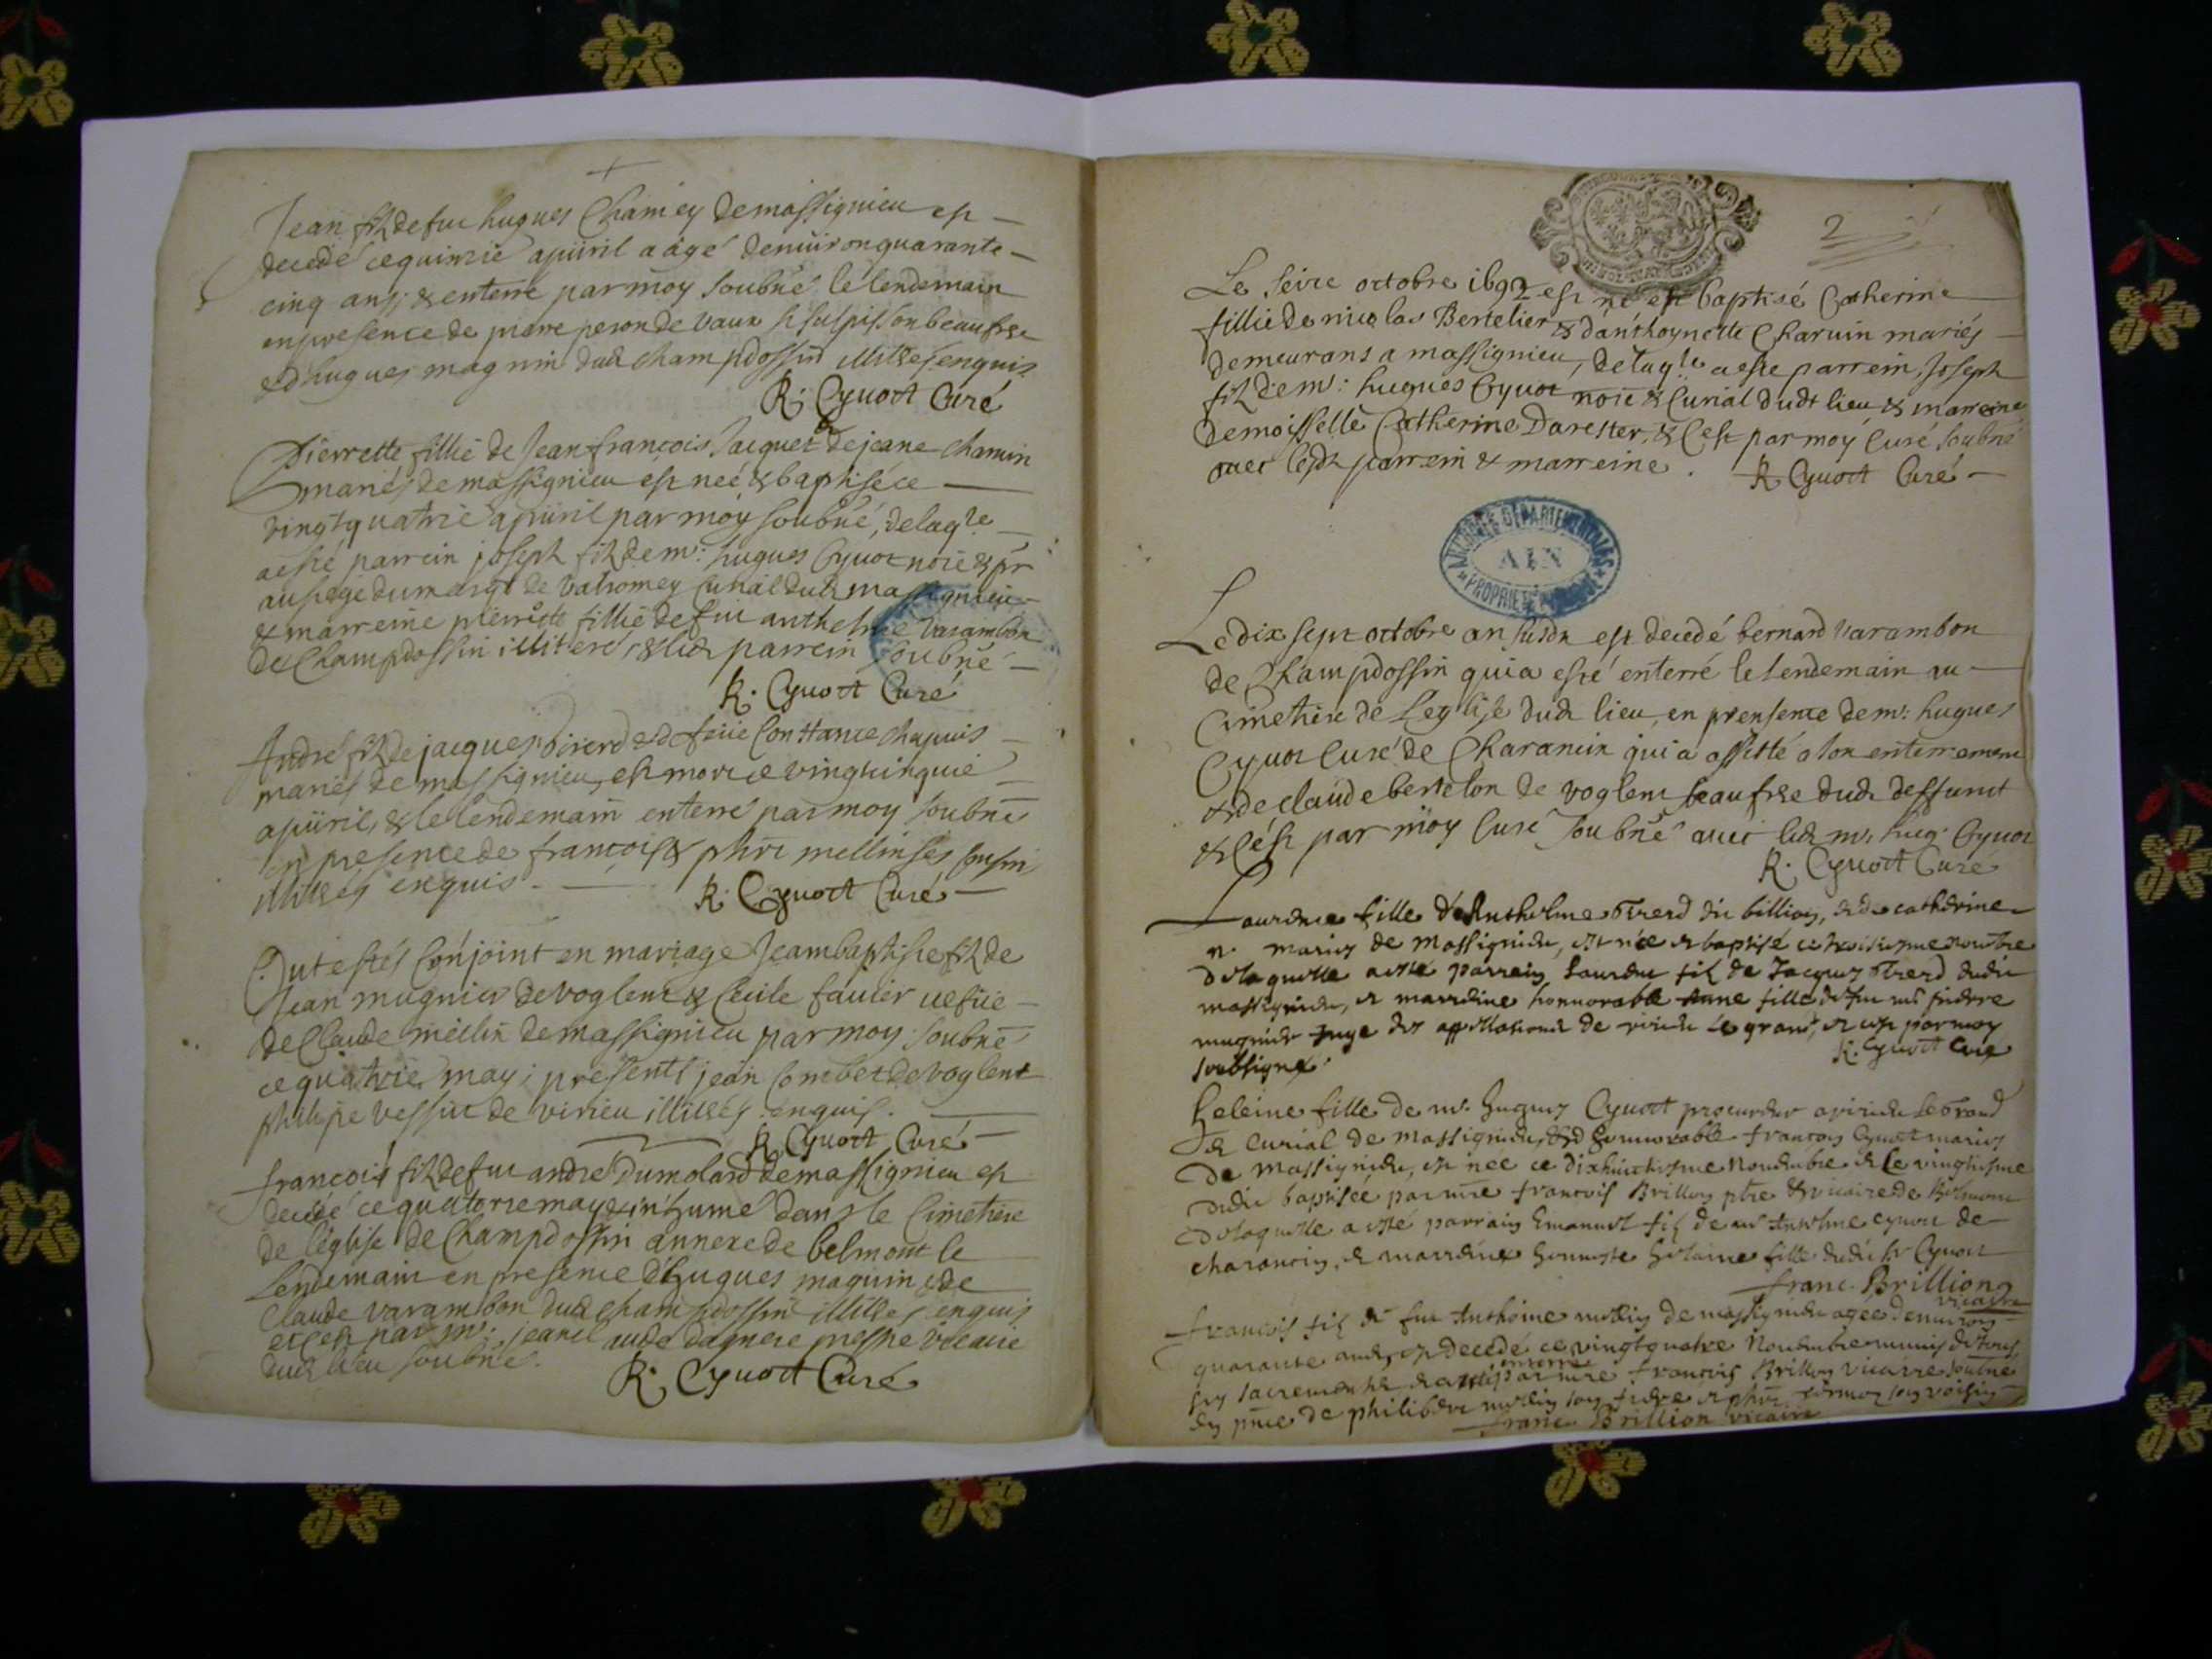 Jean filz de feu hugues Chamey de massignieu est
decedé ce quinzie apuril aagé denuiron quarante
cinq ans, & enterré par moy soubné le lendemain
en presence de piere peron de vaux
et d'hugues magnin dud champdossin illitrés enquis
R. Cyuoct Curé
Pierrette fillie de Jean francois Jacquet & de jeane chamin
mariés de massignieu est neé & baptisée ce
vingtquatrie apuril par moy soubné, de laqle
a esté parrein joseph filz de mr: hugues Cyuot noie & pr
au siege du marqt de Valromey curial dud massignieu
& marreine pierrette fillie de feu anthelme Varambon
de Champdossin illiteré, & led parrein soubné
R. Cyuoct Curé
André filz de jacques birerd & de feüe Constance chapuis
mariés de massignieu, est mort ce vingtcinquie
apuril, & le lendemain enterré par moy soubné
en presence de francois & phir mellin ses cousins
illitrés enquis. R. Cyuoct Curé
Ont estés conjoint en mariage Jeambaptiste filz de
Jean mugnier de voglent & Cecile fauier uefue
de Claude mellin de massignieu par moy soubné
ce quatrie may; presents jean Combet de voglent
philipe vessin de virieu illitrés enquis.
R. Cyuoct Curé
francois filz de feu andré Dumolard de massignieu est
decedé ce quatorze may & inhumé dans le Cimetiere
de l'eglise de Champdossin annexe de belmont le
Lendemain en presence d'hugues magnin & de
Claude varambon dud champdossin illitrés enquis
et c'est par mr: jean claude dagnere prestre vicaire
dud lieu soubné.
R. Cyuoct Curé
2
Le seize octobre 1692 est né est baptisé Catherine
fillie de nicolas Bertelier & d'anthoynette Charuin mariés
demeurans a massignieu, de laqle a esté parrein, Joseph
filz de mr: hugues Cyuot noie & Curial dudt lieu & marreine
demoisselle Catherine Darester, & c'est par moy curé soubné
auec lesd parrein & marreine. R Cyuoct Curé
ARCHIVES DÉPARTEMENTALES
AIN
PROPRIÉTÉ PUBLIQUE
Le dix sept octobre an susdt est decedé bernard varambon
de Champdossin qui a esté enterré le lendemain au
Cimetiere de Leglise dud lieu, en prensence de mr: hugues
Cyuot curé de Charancin qui a assitté a son enterrement
& de claude bertelon de voglent beaufrere dud deffunct
& c'est par moy Curé soubné auec led mr. hug. Cyuot
R. Cyuoct Curé
Laurence fille d'Anthelme Birerd dit billion, et de catherine
mariés de massignieu, est née et baptisé ce troisiesme nourbre
de laquelle a esté parrein Laurent fil de Jacques Birerd dudit
massignieu, et marreine honnorable Anne fille de feu mr pierre
mugnier Juge des appellations de virieu le grand, et c'est par moy
soubsigné. R. Cyuoct Curé
Heleine fille de mr. hugues Cyuoct procureur a virieu le Grand
et Curial de massignieu, et d honnorable francois Cyuoct mariés
De Massignieu, est née ce dixhuictiesme Nouembre et Le vingtiesme
dudit baptisée par mre francois Brillion ptre & vicaire de Belmont
de laquelle a esté parrain Emanuel fil de mr Anthelme cyuoct de
charancin, et marreine honneste helaine fille dudit sr Cyuoct
franc. Brillion
vicaire
francois fil de feu Anthoine mellin de massignieu agee denuiron
quarante ans, est decedé ce vingtquatre Nouembre munis de tous
les sacrements et a esté enterré par mre francois Brillion vicaire soubné
en pnce de philibert mellin son frere et son voisin
franc Brillion vicaire